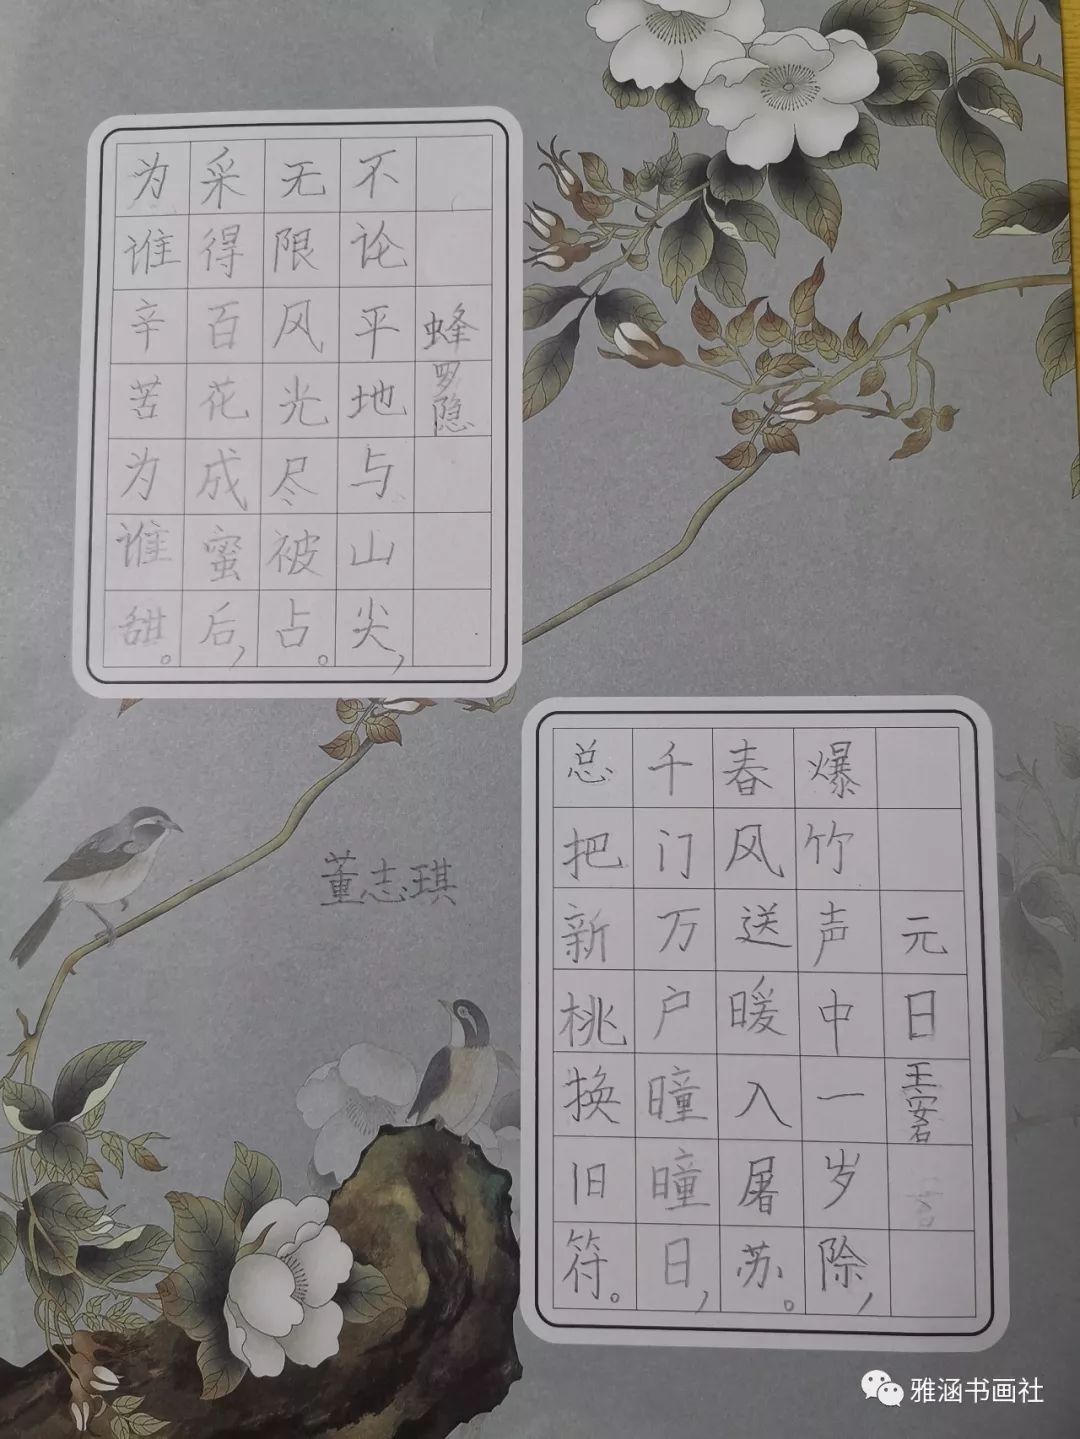 蜂
罗隐
不论平地与山尖，
无限风光尽被占。
采得百花成蜜后，
为谁辛苦为谁甜。
董志琪
元日
王安石
爆竹声中一岁除，
春风送暖入屠苏。
千门万户曈曈日，
总把新桃换旧符。
雅涵书画社